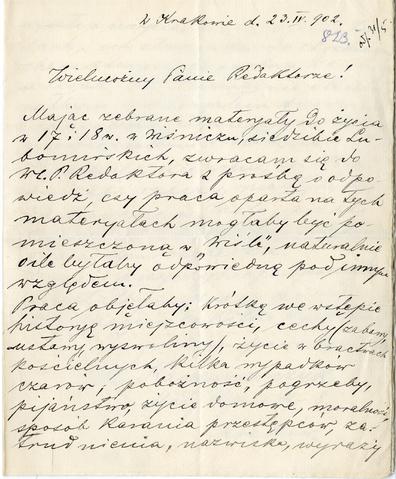 w Krakowie d. 23. IV. 902.
823.
odp. 31/5
Wielmożny Panie Redaktorze!
Mając zebrane materyały do życia
w 17 i 18 w. w Wiśniczu, siedzibie Lu-
bomirskich, zwracam się do
W. P. Redaktora z prośbą o odpo
wiedź, czy praca oparta na tych
materyałach mogłaby być po
mieszczoną w "Wiśle", naturalnie
o ile byłaby odpowiedną pod innym
względem.
Praca objęłaby: krótką we wstępie
historyę miejscowości, cechy (zabawy,
ustawy, wyzwoliny), życie w bractwach
kościelnych, kilka wypadków
czarów, pobożność, pogrzeby,
pijaństwo, życie domowe, moralność,
sposób karania przestępców, za-
trudnienia, nazwiska, wyrazy